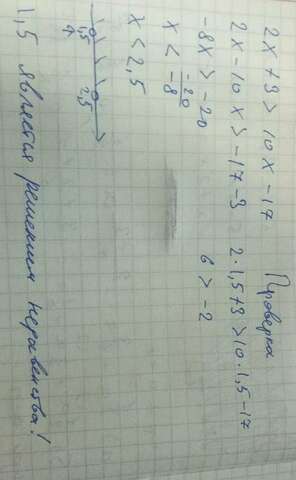 2x+3 > 10x-17
2x-10x > -17-3
-8x > -20
x < -20/-8
x < 2,5
Проверка
2·1,5+3 > 10·1,5-17
6 > -2
1,5 2,5
1,5 является решением неравенства!